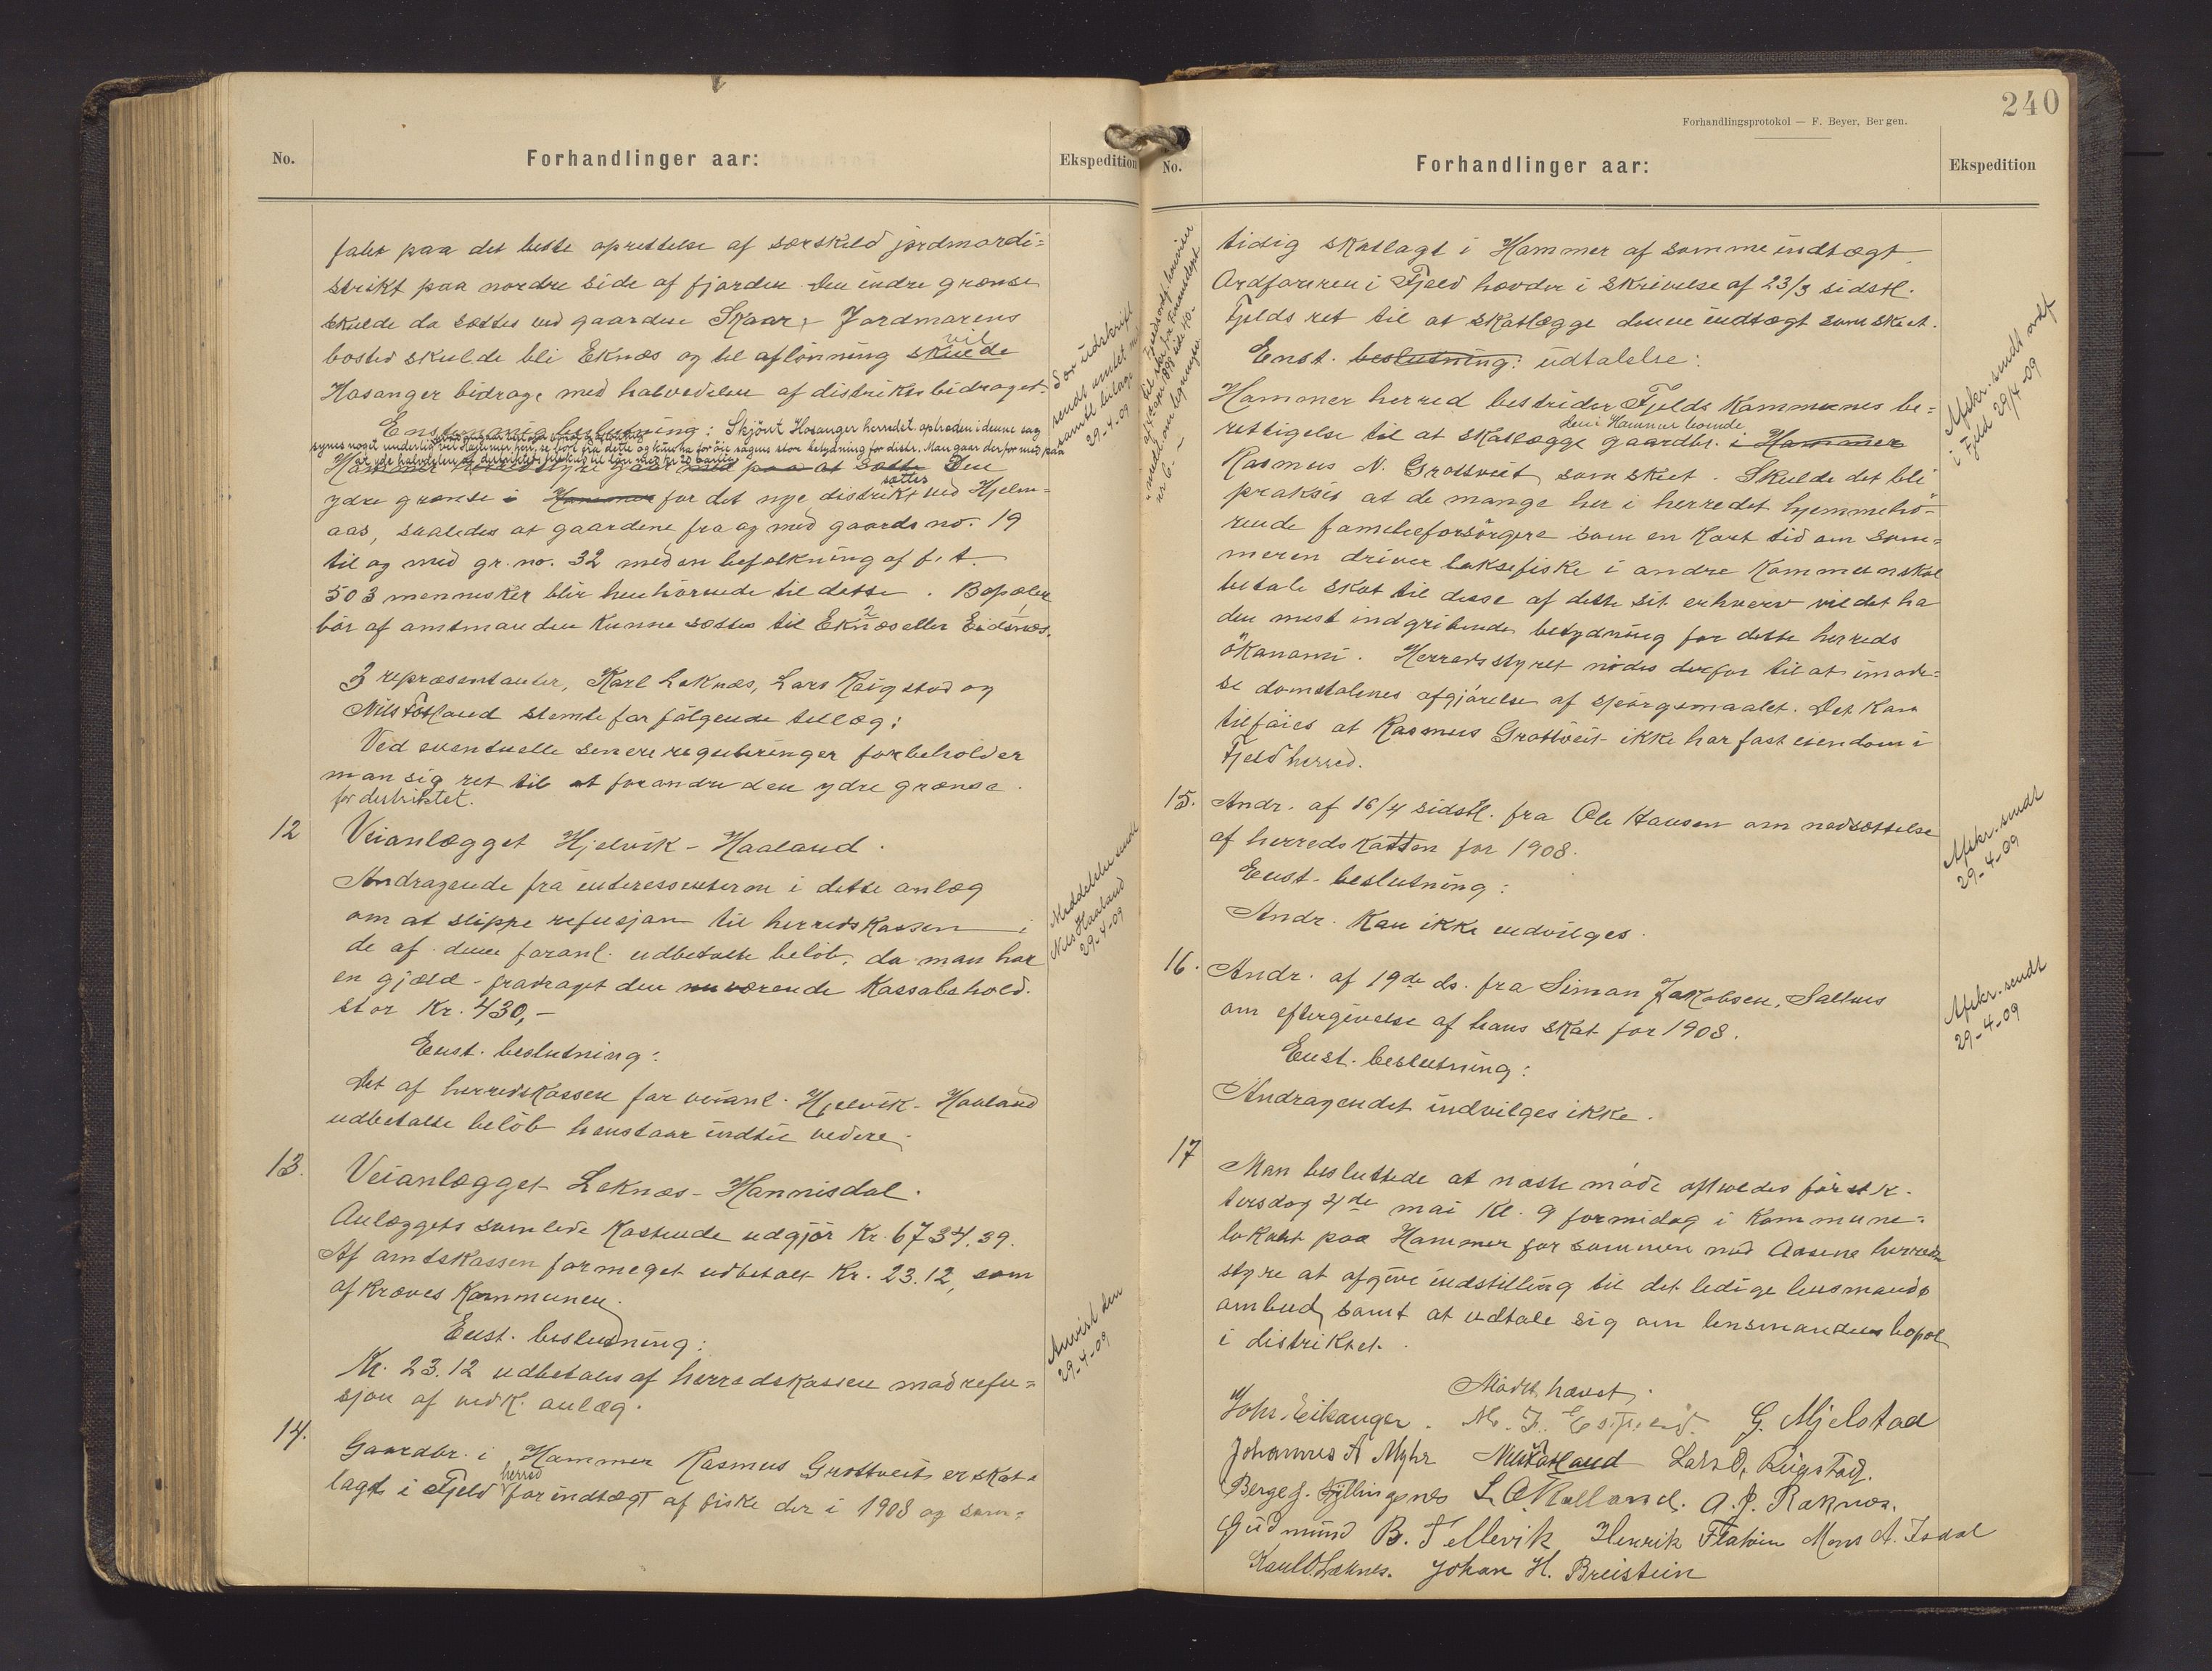 No.
Forhandlinger aar:
Ekspedition
falt paa det beste oprettelse af særskild jordmordi=
strikt paa nordre side af fjorden. Den indre grænse
skulde da sættes ved gaarden Skaar. Jordmorens
bosted skulde bli Eknæs og til aflönning skulde vil
Hosanger bidrage med halvdelen af distriktsbidraget.
Enstemmig beslutning: Skjönt Hosanger herredst. optræden i denne sag
synes noget underlig vil Hammer her, se bort fra dette og kun ha for öie sagens store betydning for distr. Man gaar derfor med paa
at yde halvdelen af distriktets tilskud til lön med kr. 20
Hammer herredsstyre gaar med paa at sætte Den
ydre grænse i Hammer for det nye distrikt sættes ved Hjelm=
aas, saaledes at gaardene fra og med gaards no. 19
til og med gr. no. 32 med en befolkning af f. t.
503 mennesker blir henhörende til dette. Bopælen
bör af amtmanden kunne sættes til Eknæs eller Eidsnæs.
3 repræsentanter, Karl Leknæs, Lars Röigstad og
Nils Totland stemte for fölgende tillæg:
Ved eventuelle senere reguleringer forbeholder
man sig ret til at forandre den ydre grænse
for distriktet.
Sær udskrift
sendt amtet med
samtl bilage
29-4-09
12
Veianlægget Hjelvik - Haaland.
Andragende fra interessenterne i dette anlæg
om at slippe refusjon til herredskassen i
de af denne foranl. udbetalte belöb, da man har
en gjæld - fradraget den nuværende Kassabehold.
stor Kr. 430,-
Enst. beslutning:
Det af herredskassen for veianl. Hjelvik - Haaland
udbetalte belöb henstaar indtil videre.
Meddelelse sendt
Nils Haaland
29-4-09
13.
Veianlægget Leknæs - Hannisdal.
Anlæggets samlede Kostende udgjör Kr. 6734.39.
Af amtskassen formeget udbetalt Kr. 23.12, som
afkræves Kommunen.
Enst. beslutning:
Kr. 23.12 udbetales af herredskassen mod refu=
sjon af vedk. anlæg.
Anvist den
29-4-09
14.
Gaardbr. i Hammer Rasmus Grottveit er skat=
lagt i Fjeld herred for indtægt af fiske der i 1908 og sam=
240
Forhandlingsprotokol — F. Beyer, Bergen.
No.
Forhandlinger aar:
Ekspedition
tidig skatlagt i Hammer af samme indtægt.
Ordföreren i Fjeld hævder i skrivelse af 23/3 sidstl.
Fjelds ret til at skatlægge denne indtægt som skeet.
Enst. beslutning: udtalelse:
Hammer herred bestrider Fjelds Kommunes be=
rettigelse til at skatlægge gaardbr. i Hammer den i Hammer boende
Rasmus N. Grottveit som skeet. Skulde det bli
praksis at de mange her i herredet hjemmehö=
rende familieforsörgere som en kort tid om som=
meren driver laksefiske i andre Kommuner skal
betale skat til disse af dette sit erhverv vil det ha
den mest indgribende betydning for dette herreds
ökonomi. Herredsstyret nödes derfor til at imöde=
se domstolenes afgjörelse af spörgsmaalet. Det kan
tilföies at Rasmus Grottveit ikke har fast eiendom i
Fjeld herred.
Afskr. sendt ordf
i Fjeld 29/4-09
15.
Andr. af 16/4 sidstl. fra Ole Hansen om nedsættelse
af herredskatten for 1908.
Enst. beslutning:
Andr. kan ikke indvilges.
Afskr. sendt
29-4-09
16.
Andr. af 19de ds. fra Simon Jakobsen, Salhus
om eftergivelse af hans skat for 1908.
Enst. beslutning:
Andragendet indvilges ikke.
Afskr. sendt
29-4-09
17
Man besluttede at næste möde afholdes först k.
tirsdag 4de mai Kl. 9 formidag i Kommune=
lokalet paa Hammer for sammen med Aasene herreds
styre at afgive indstilling til det ledige lensmands
ombud, samt at udtale sig om lensmandens bopæl
i distriktet.
Mödet hævet.
Johs. Eikanger. G. Mjelstad
Johannes A Myhr Nils Totland Lars O. Röigstad.
Berge J. Fyllingsnes L. O. Kalland. A. J. Raknes.
Gudmund B. Tellevik Henrik Flatöen Mons A. Isdal
Karl O. Leknes. Johan H. Breistein